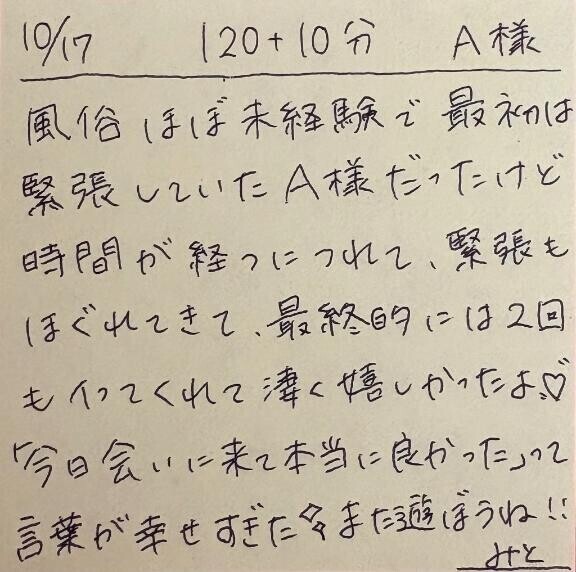 10/17 120+10分 A様
風俗ほぼ未経験で最初は
緊張していたA様だったけど
時間が経つにつれて、緊張も
ほぐれてきて、最終的には2回
もイってくれて凄く嬉しかったよ♡
「今日会いに来て本当に良かった」って
言葉が幸せすぎたまた遊ぼうね!!
みと